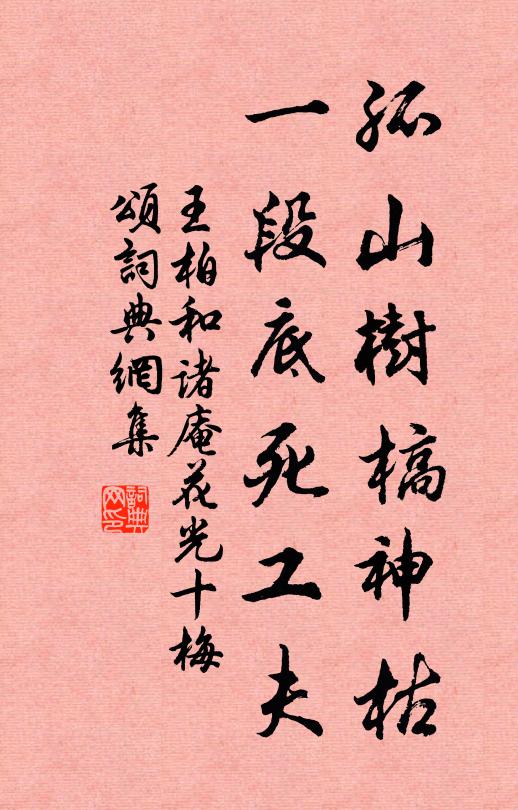 孤山樹槁神枯
一段底死工夫
王柏和诸庵花光十梅
頌詞典網集
詞典网印